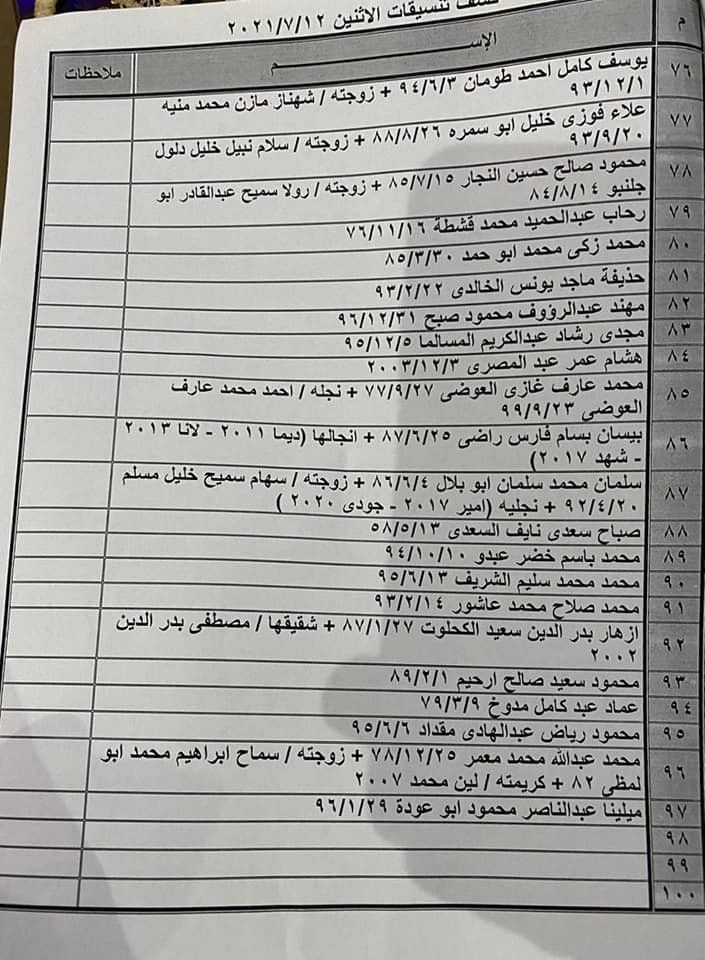 كشف تنسيقات الاثنين ٢٠٢١/٧/١٢
م الإســـــم ملاحظات
٧٦ يوسف كامل احمد طومان ٩٤/٦/٣ + زوجته / شهناز مازن محمد منيه
٩٣/١٢/١
٧٧ علاء فوزى خليل ابو سمره ٨٨/٨/٢٦ + زوجته / سلام نبيل خليل دلول
٩٣/٩/٢٠
٧٨ محمود صالح حسين النجار ٨٥/٧/١٥ + زوجته / رولا سميح عبدالقادر ابو
جلنبو ٨٤/٨/١٤
٧٩ رحاب عبدالحميد محمد قشطة ٧٦/١١/١٦
٨٠ محمد زكى محمد ابو حمد ٨٥/٣/٣٠
٨١ حذيفة ماجد يونس الخالدى ٩٣/٢/٢٢
٨٢ مهند عبدالرؤوف محمود صبح ٩٦/١٢/٣١
٨٣ مجدى رشاد عبدالكريم المسالما ٩٥/١٢/٥
٨٤ هشام عمر عبد المصرى ٢٠٠٣/١٢/٣
٨٥ محمد عارف غازى العوضي ٧٧/٩/٢٧ + نجله / احمد محمد عارف
العوضي ٩٩/٩/٢٣
٨٦ بيسان بسام فارس راضى ٨٧/٦/٢٥ + انجالها (ديما ٢٠١١ - لانا ٢٠١٣
- شهد ٢٠١٧)
٨٧ سلمان محمد سلمان ابو بلال ٨٦/٦/٤ + زوجته / سهام سميح خليل مسلم
٩٢/٤/٢٠ + نجليه (امير ٢٠١٧ - جودى ٢٠٢٠ )
٨٨ صباح سعدى نايف السعدى ٥٨/٥/١٣
٨٩ محمد باسم خضر عبدو ٩٤/١٠/١٠
٩٠ محمد محمد سليم الشريف ٩٥/٦/١٣
٩١ محمد صلاح محمد عاشور ٩٣/٢/١٤
٩٢ ازهار بدر الدين سعيد الكحلوت ٨٧/١/٢٧ + شقيقها / مصطفى بدر الدين
٢٠٠٢
٩٣ محمود سعيد صالح ارحيم ٨٩/٢/١
٩٤ عماد عبد كامل مدوخ ٧٩/٣/٩
٩٥ محمود رياض عبدالهادى مقداد ٩٥/٦/٦
٩٦ محمد عبدالله محمد معمر ٧٨/١٢/٢٥ + زوجته / سماح ابراهيم محمد ابو
لمظي ٨٢ + كريمته / لين محمد ٢٠٠٧
٩٧ ميلينا عبدالناصر محمود ابو عودة ٩٦/١/٢٩
٩٨
٩٩
١٠٠